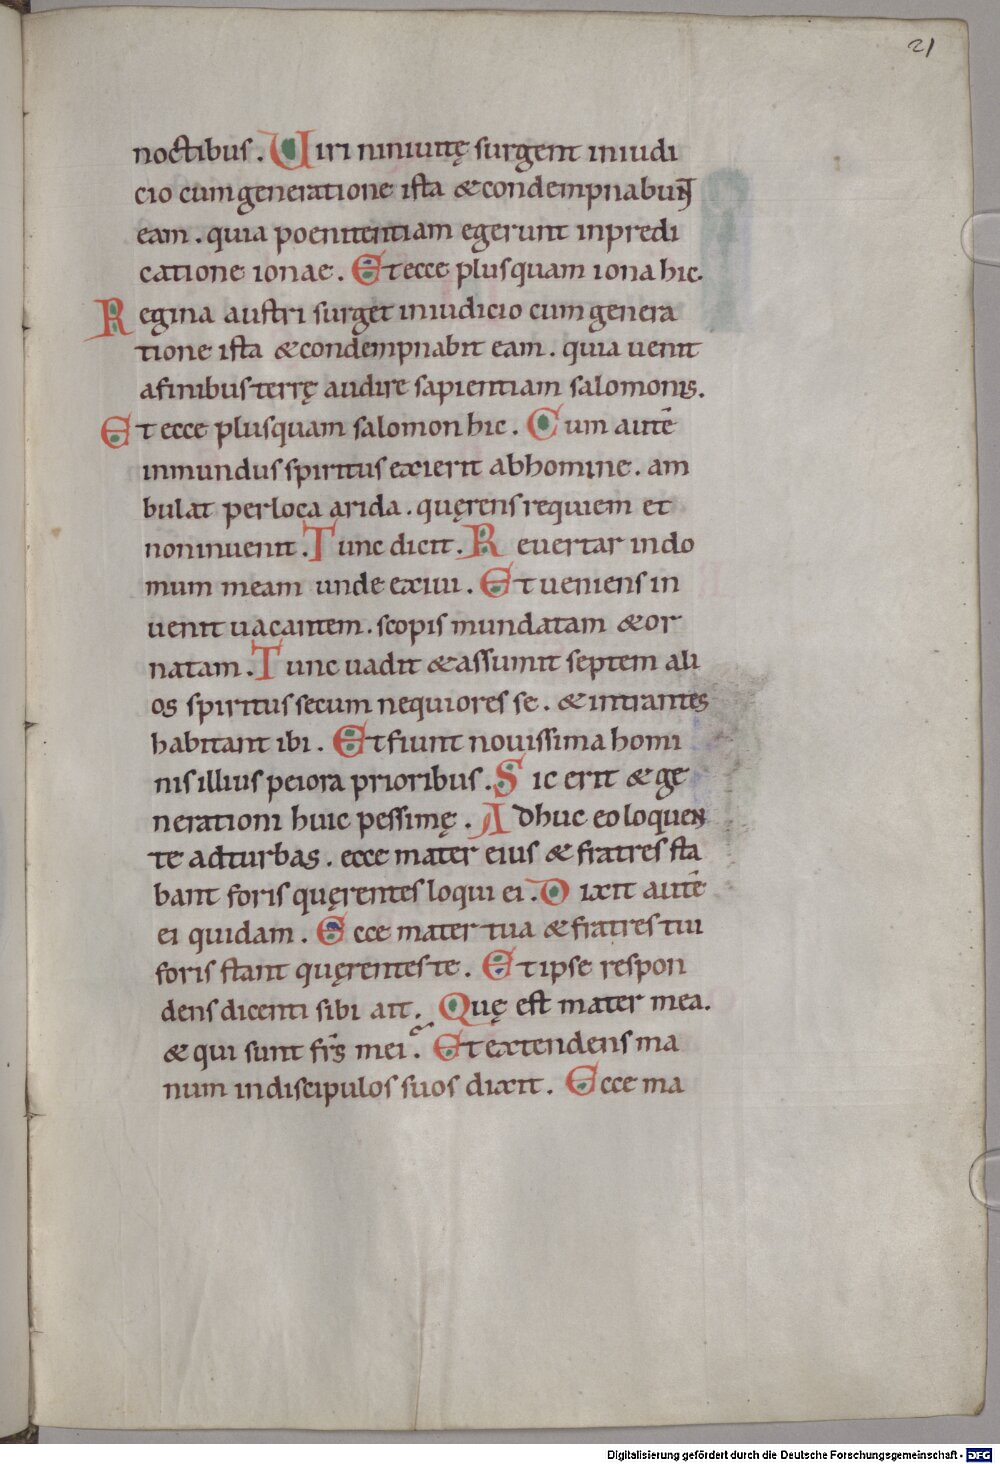 21
noctibus. Uiri niniuitę surgent iniudi
cio cumgeneratione ista &condempnabunt
eam. quia poenitentiam egerunt inpredi
catione ionae. Etecce plusquam iona hic.
Regina austri surget iniudicio cumgenera
tione ista &condempnabit eam. quia uenit
afinibusterrę audire sapientiam salomonis.
Et ecce plusquam salomon hic. Cum autē
inmundus spiritus exierit abhomine. am
bulat perloca arida. quęrens requiem et
noninuenit. Tunc dicit. Reuertar indo
mum meam unde exiui. Et ueniens in
uenit uacantem. scopis mundatam &or
natam. Tunc uadit &assumit septem ali
os spiritus secum nequiores se. &intrantes
habitant ibi. Et fiunt nouissima homi
nis illius peiora prioribus. Sic erit &ge
nerationi huic pessimę. Adhuc eo loquen
te adturbas. ecce mater eius &fratres sta
bant foris quęrentes loqui ei. Dixit autē
ei quidam. Ecce mater tua &fratres tui
foris stant quęrentes te. Et ipse respon
dens dicenti sibi ait. Quę est mater mea.
& qui sunt frs̄ mei. Et extendens ma
num indiscipulos suos dixit. Ecce ma
Digitalisierung gefördert durch die Deutsche Forschungsgemeinschaft - DFG